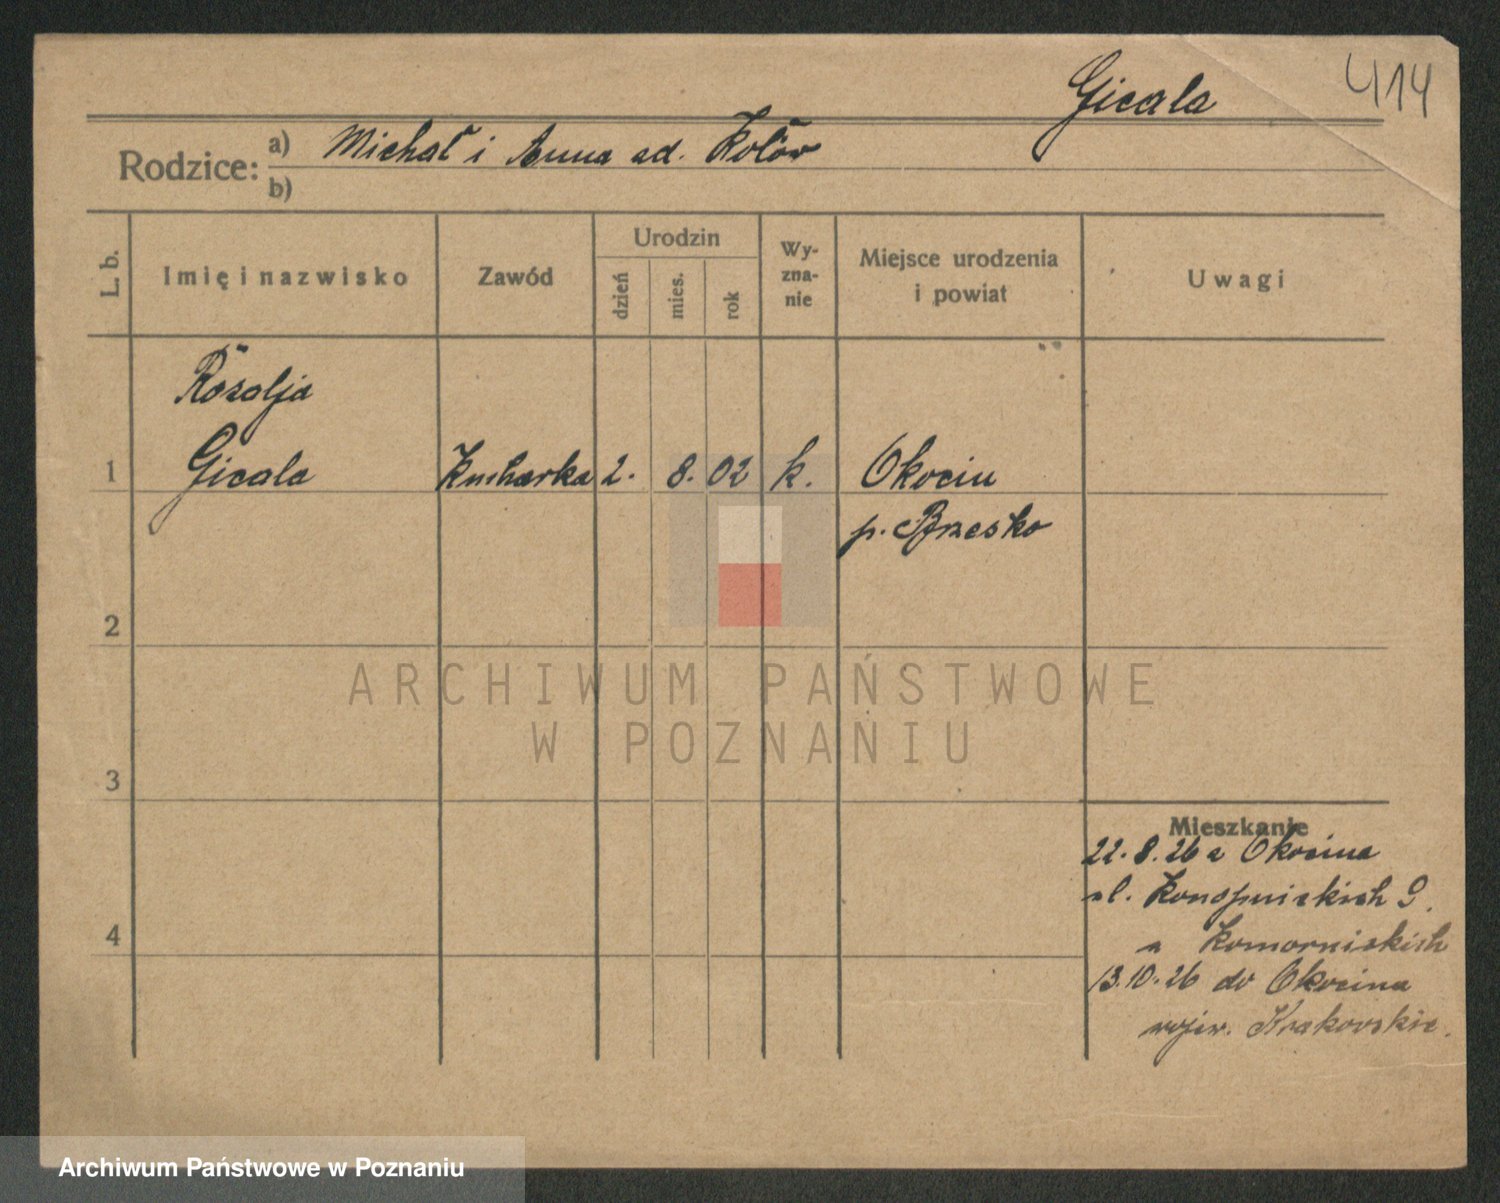 Gicala
414
Rodzice: a) Michał i Anna ad. Kotów
b)
L. b.
Imię i nazwisko
Zawód
Urodzin
dzień
mies.
rok
Wy-
zna-
nie
Miejsce urodzenia
i powiat
Uwagi
Rozalja
1 Gicala Kucharka 2. 8. 02 k. Okocim
p. Brzesko
2
3
4
Mieszkanie
22.8.26 z Okocima
ul.
u Komornickich
13.10.26 do Okocima
wojew. Krakowskie.
ARCHIWUM PAŃSTWOWE
W POZNANIU
Archiwum Państwowe w Poznaniu